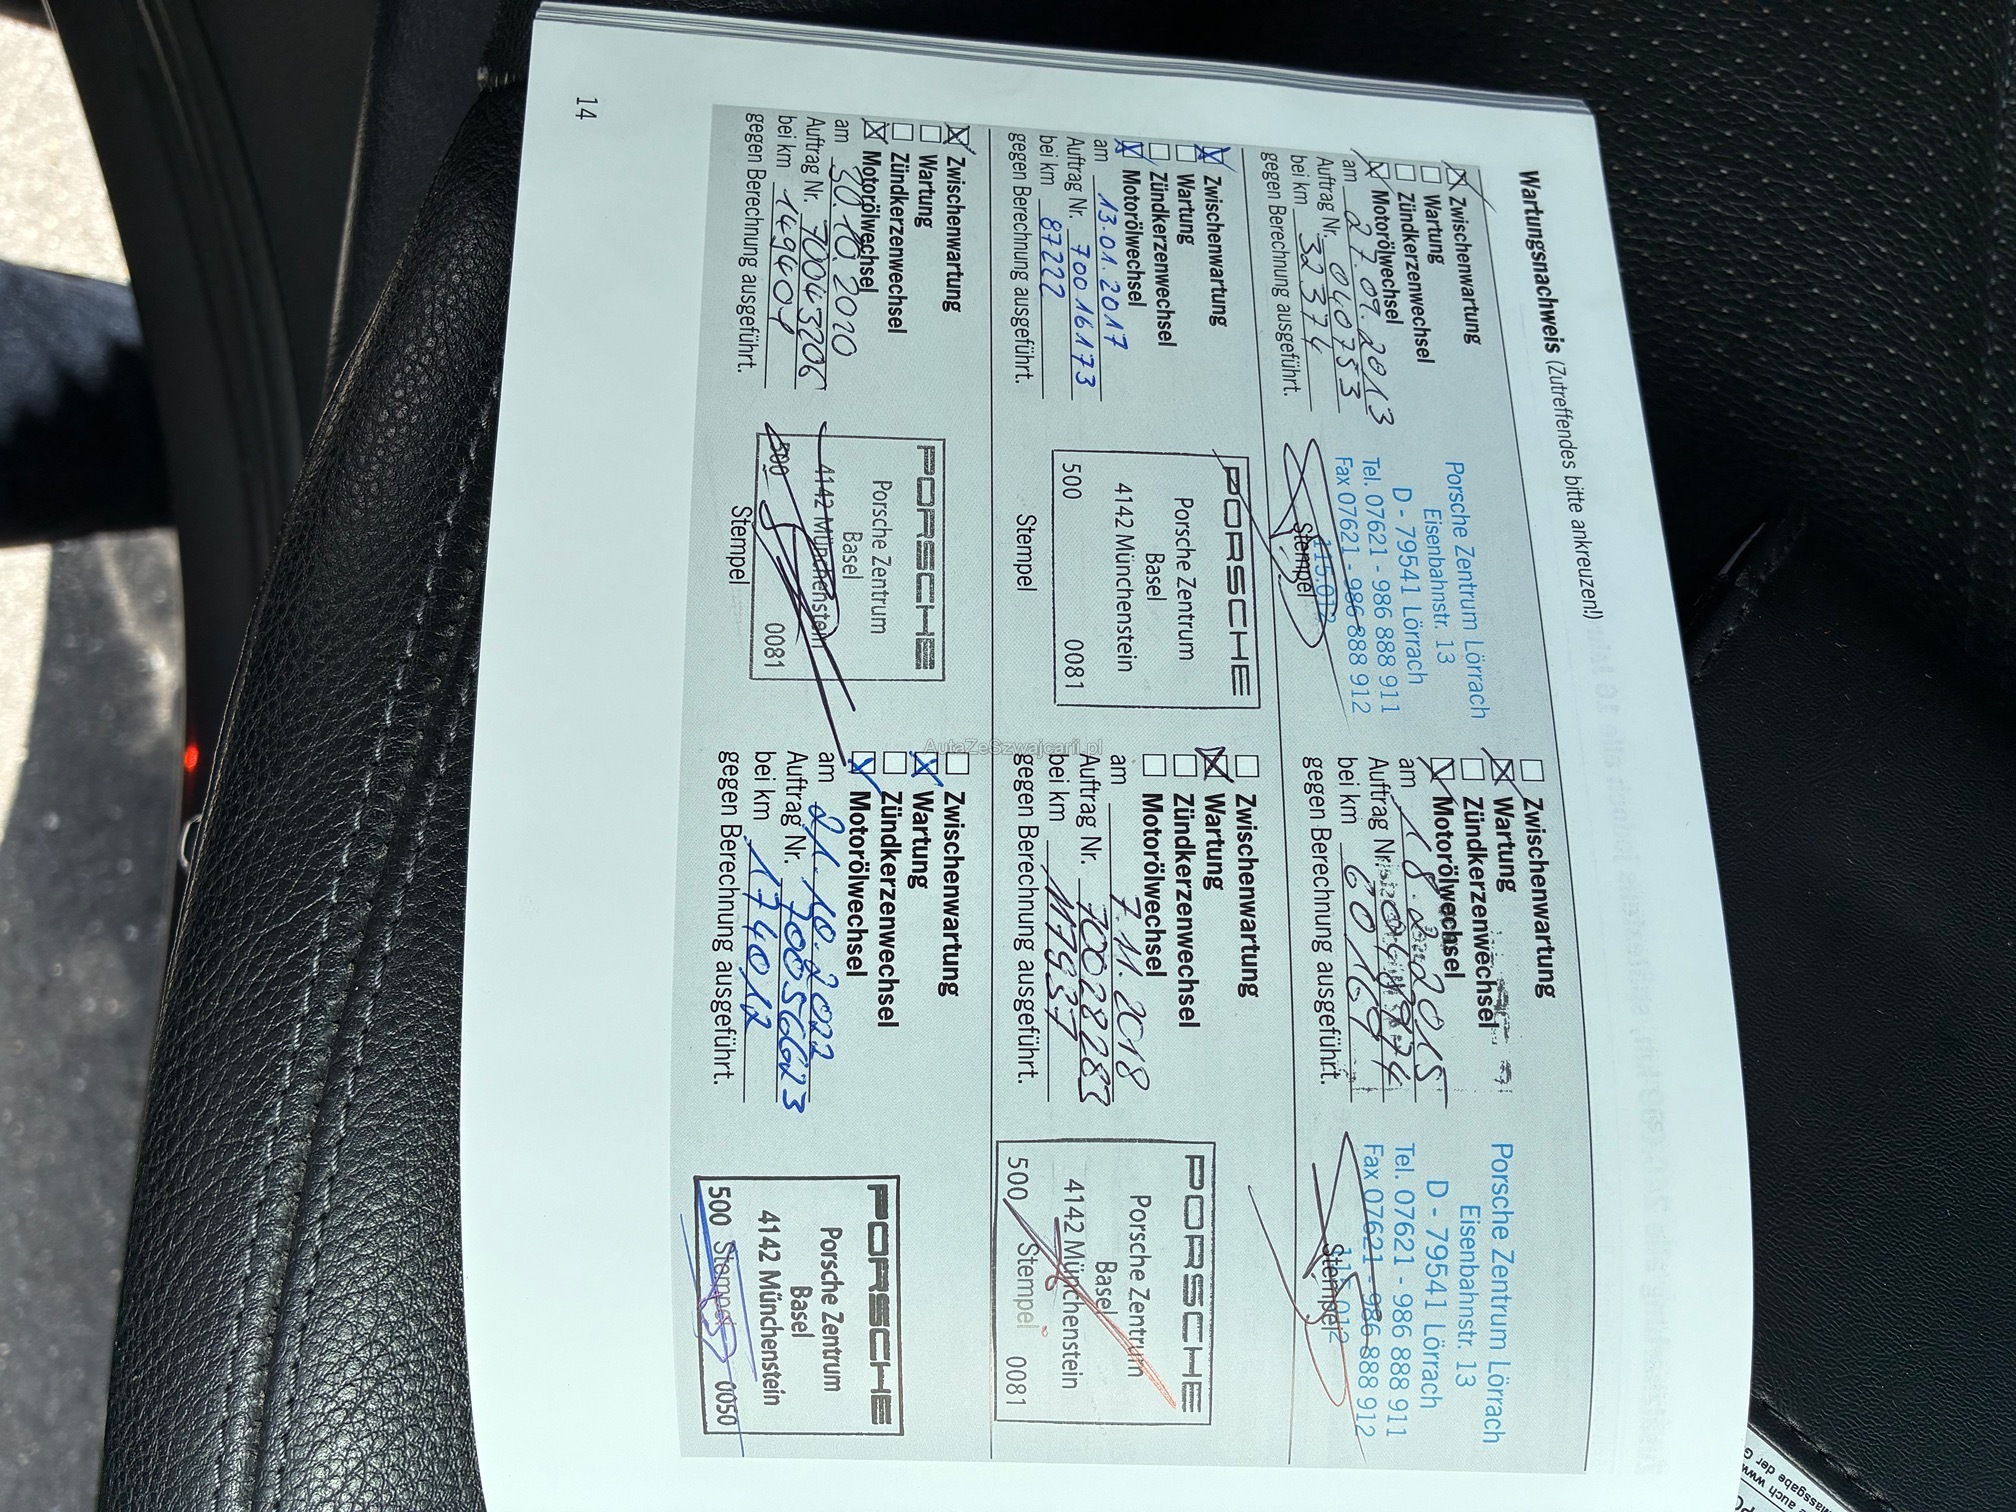 Wartungsnachweis (Zutreffendes bitte ankreuzen!)
Zwischenwartung
Wartung
Zündkerzenwechsel
Motorölwechsel
am 27.09.2013
Auftrag Nr. 040753
bei km 32374
gegen Berechnung ausgeführt.
Porsche Zentrum Lörrach
Eisenbahnstr. 13
D - 79541 Lörrach
Tel. 07621 - 986 888 911
Fax 07621 - 986 888 912
Stempel
Zwischenwartung
Wartung
Zündkerzenwechsel
Motorölwechsel
am 18.2.2015
Auftrag Nr.
bei km
gegen Berechnung ausgeführt.
Porsche Zentrum Lörrach
Eisenbahnstr. 13
D - 79541 Lörrach
Tel. 07621 - 986 888 911
Fax 07621 - 986 888 912
Stempel
Zwischenwartung
Wartung
Zündkerzenwechsel
Motorölwechsel
am 13.01.2017
Auftrag Nr. 70016173
bei km 87222
gegen Berechnung ausgeführt.
PORSCHE
Porsche Zentrum
Basel
4142 Münchenstein
500 0081
Stempel
Zwischenwartung
Wartung
Zündkerzenwechsel
Motorölwechsel
am 7.11.2018
Auftrag Nr. 70028283
bei km 117937
gegen Berechnung ausgeführt.
PORSCHE
Porsche Zentrum
Basel
4142 Münchenstein
500 Stempel 0081
Zwischenwartung
Wartung
Zündkerzenwechsel
Motorölwechsel
am 30.10.2020
Auftrag Nr. 70043206
bei km 149409
gegen Berechnung ausgeführt.
PORSCHE
Porsche Zentrum
Basel
4142 Münchenstein
500 0081
Stempel
Zwischenwartung
Wartung
Zündkerzenwechsel
Motorölwechsel
am 21.10.2022
Auftrag Nr. 70056623
bei km 174012
gegen Berechnung ausgeführt.
PORSCHE
Porsche Zentrum
Basel
4142 Münchenstein
500 Stempel 0050
14
AutaZeSzwajcarii.pl